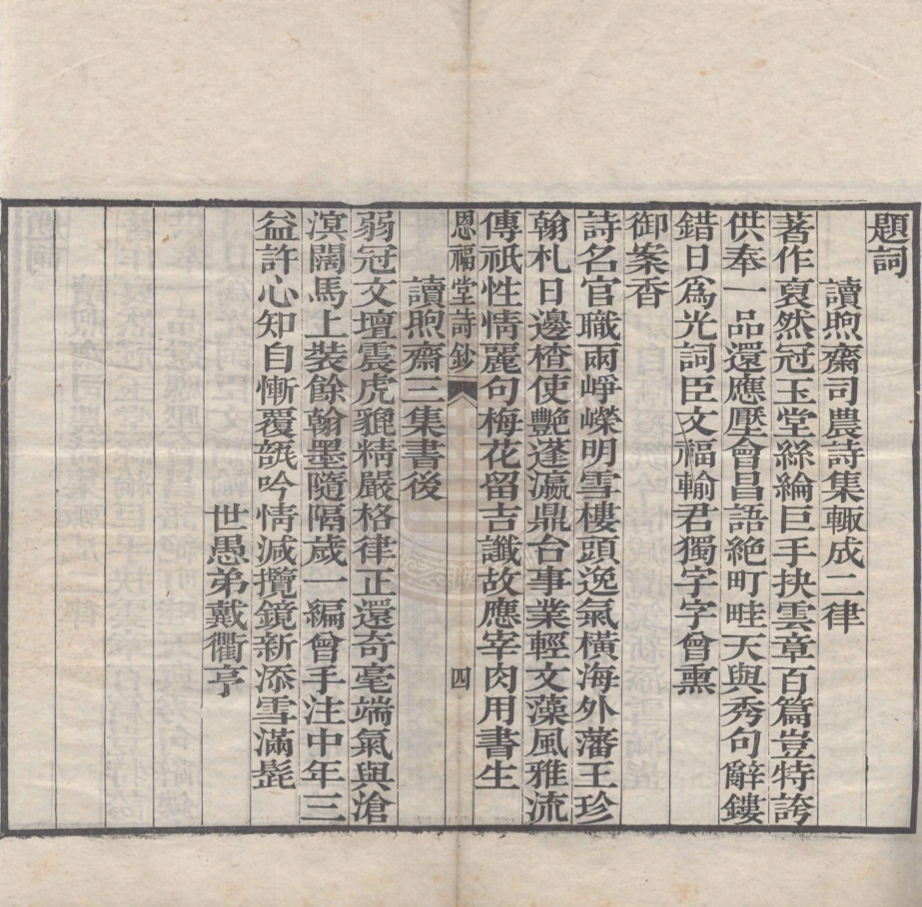 題詞
讀煦齋司農詩集輙成二律
著作裒然冠玉堂絲綸巨手抉雲章百篇豈特誇
供奉一品還應壓會昌語絶町畦天與秀句辭鏤
錯日爲光詞臣文福輸君獨字字曾熏
御案香
詩名官職兩崢嶸明雪樓頭逸氣橫海外藩王珍
翰札日邊楂使艷蓬瀛鼎台事業輕文藻風雅流
傳祇性情麗句梅花留吉讖故應宰肉用書生
恩福堂詩鈔 四
讀煦齋三集書後
弱冠文壇震虎貔精嚴格律正還奇毫端氣與滄
溟闊馬上裝餘翰墨隨隔歲一編曾手注中年三
益許心知自慚覆瓿吟情減攬鏡新添雪滿髭
世愚弟戴衢亨